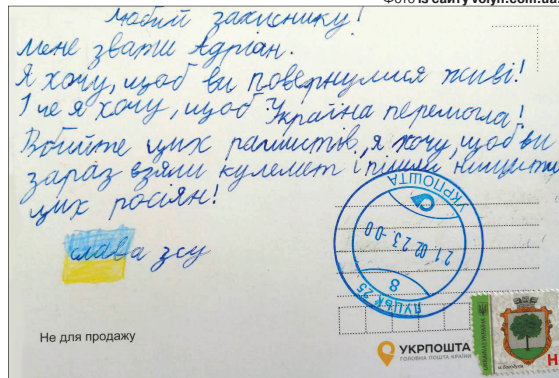 Фото із сайту volyn.com.ua
Любий захиснику!
Мене звати Адріан.
Я хочу, щоб ви повернулися живі!
І ще я хочу, щоб Україна перемогла!
Вбийте цих рашистів, я хочу, щоб ви
зараз взяли кулемет і пішли нищити
цих росіян!
слава зсу
УКРПОШТА
21 02 23-00
8
ЛУЦЬК 25
Не для продажу
УКРПОШТА
ГОЛОВНА ПОШТА КРАЇНИ